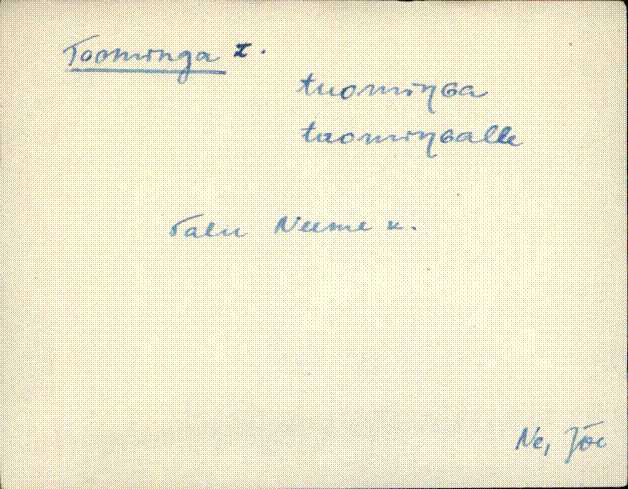 Toominga I.
tuominɢa
tuominɢalle
Talu Neeme k.
Ne, Jõe